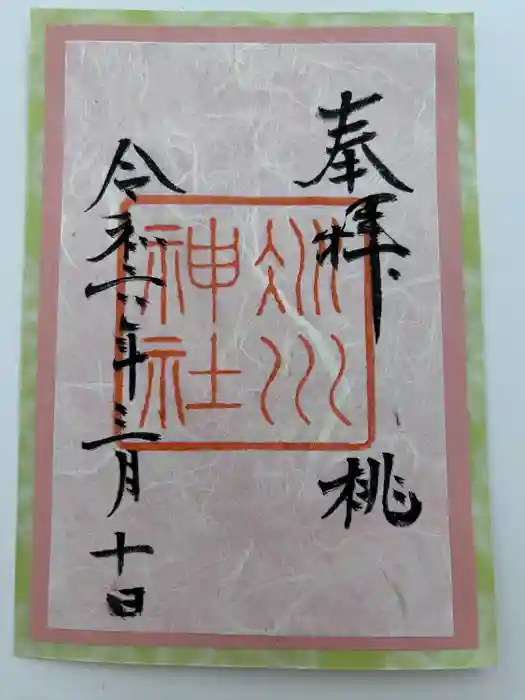 奉拝 桃
冰川
神社
令和六年三月十日